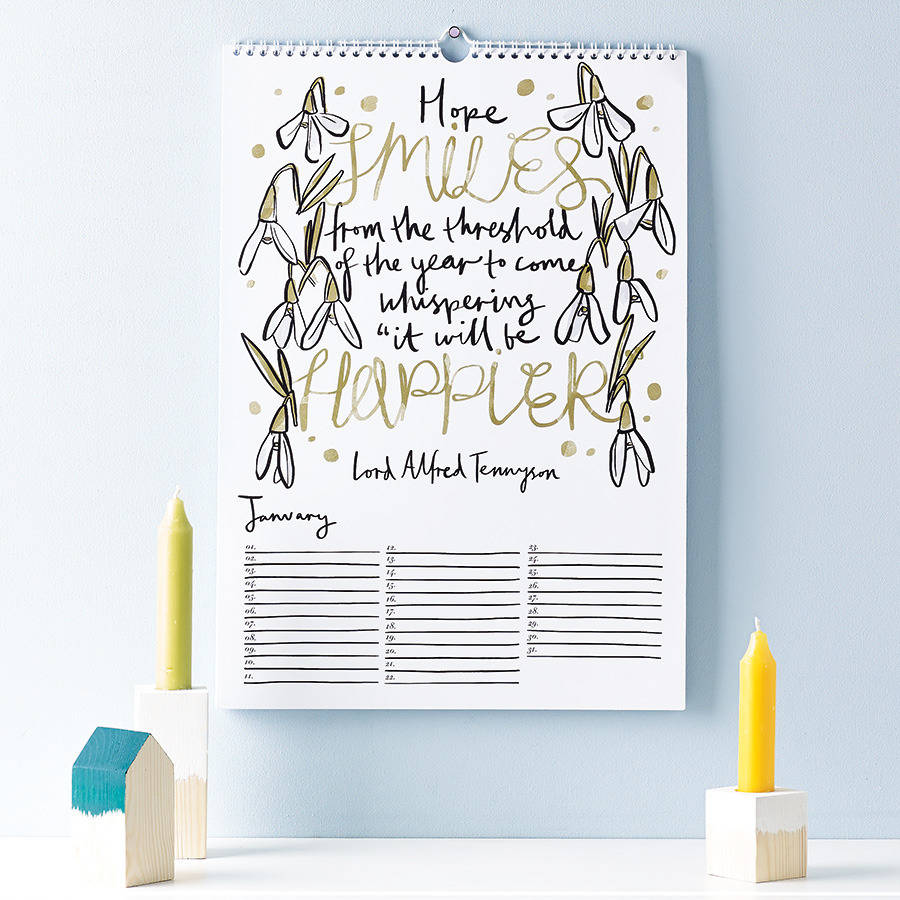 Hope
SMILES
from the threshold
of the year to come
whispering
"it will be
HAPPIER
Lord Alfred Tennyson
January
01.
02.
03.
04.
05.
06.
07.
08.
09.
10.
11.
12.
13.
14.
15.
16.
17.
18.
19.
20.
21.
22.
23.
24.
25.
26.
27.
28.
29.
30.
31.